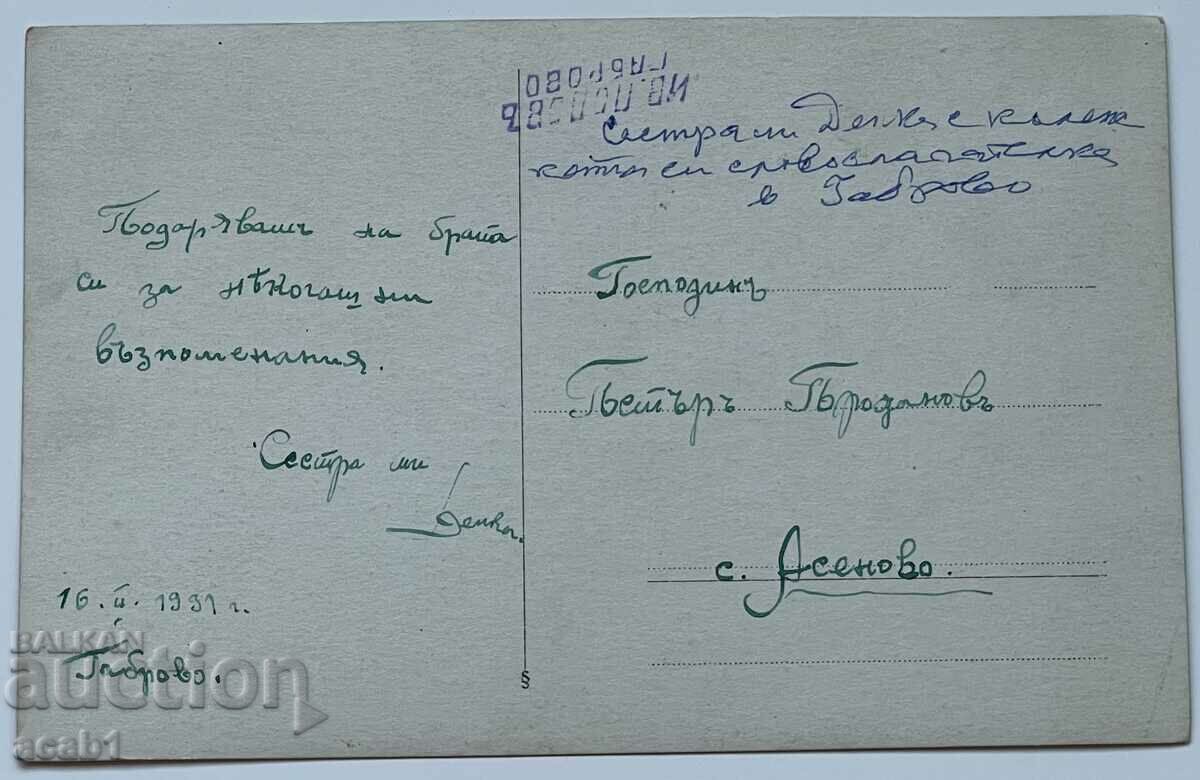 ГАБРОВО
Подарявамъ на брата
си за нѣкогашни
възпоменания.
Сестра ми
Денка.
16. II. 1931 г.
Габрово.
Сестра ми Денка с колеж
катки си словослагателка
в Габрово
Господинъ
Петъръ Продановъ
с. Асеново.
§
BALKAN
auction
acab1